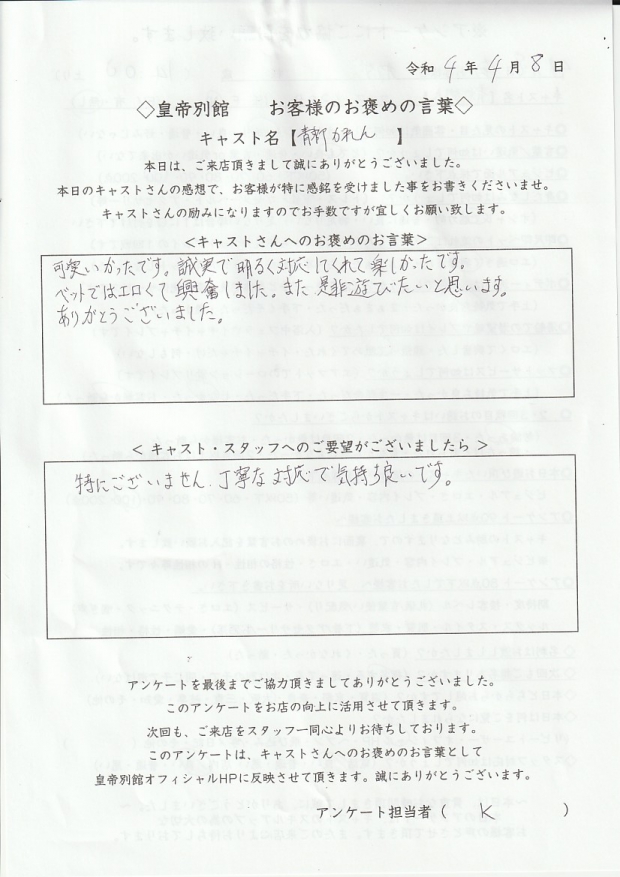 令和 4 年 4 月 8 日
◇皇帝別館　お客様のお褒めの言葉◇
キャスト名【青都かれん　】
本日は、ご来店頂きまして誠にありがとうございました。
本日のキャストさんの感想で、お客様が特に感銘を受けました事をお書きくださいませ。
キャストさんの励みになりますのでお手数ですが宜しくお願い致します。
＜キャストさんへのお褒めのお言葉＞
可愛いかったです。誠実で明るく対応してくれて楽しかったです。
ベットではエロくて興奮しました。また是非遊びたいと思います。
ありがとうございました。
＜ キャスト・スタッフへのご要望がございましたら ＞
特にございません。丁寧な対応で気持ち良いです。
アンケートを最後までご協力頂きましてありがとうございました。
このアンケートをお店の向上に活用させて頂きます。
次回も、ご来店をスタッフ一同心よりお待ちしております。
このアンケートは、キャストさんへのお褒めのお言葉として
皇帝別館オフィシャルHPに反映させて頂きます。誠にありがとうございます。
アンケート担当者（　K　）